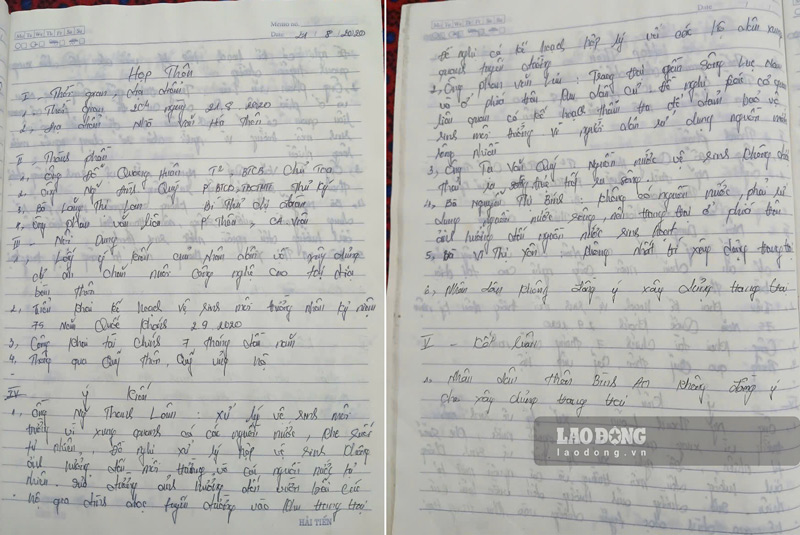 Memo no.
Date 21 / 8 / 2020
Họp Thôn
I - Thời gian, địa điểm
1, Thời gian 20h ngày 21.8.2020
2, Địa điểm Nhà Văn Hóa Thôn
II, Thành phần
1, Ông Đỗ Quang Huân T², BTCB Chủ Tọa
2, Ông Ng Đình Quý P BTCB, Thư Ký
3, Bà Lăng Thị Lam Bí Thư chi đoàn
4, Ông Phan Văn Liên P Thôn, CA viên
III - Nội Dung
1, Lấy ý kiến của nhân dân về xây dựng
dự án chăn nuôi công nghệ cao tại địa
bàn thôn
2, Triển khai kế hoạch vệ sinh môi trường nhân kỷ niệm
75 Năm Quốc Khánh 2.9.2020
3, Công khai tài chính 7 tháng đầu năm
4, Thông qua Quỹ thôn, Quỹ
IV Ý Kiến
1, Ông Ng Thanh Lâm : xử lý vệ sinh môi
trường vì xung quanh có các nguồn nước, khe suối
tự nhiên, Đề nghị xử lý hợp vệ sinh không
ảnh hưởng đến môi trường và các nguồn nước tự
nhiên. ảnh hưởng đến các
hộ gia đình dọc tuyến đường vào khu trang trại
HẢI TIẾN
Date
Đề nghị có kế hoạch hợp lý với các hộ dân xung
quanh tuyến đường
2, Ông Phan Văn Liu : Trang trại gần sông Lục Nam
và ở phía trên khu dân cư đề nghị cơ quan
liên quan có kế hoạch thẩm tra để đảm bảo vệ
sinh môi trường vì người dân sử dụng nguồn nước
sông nhiều
3, Ông Tạ Văn Quý, Nguồn nước vệ sinh không
thải ra sông
4, Bà Nguyễn Thị Bình : không có nguồn nước, phải sử
dụng nguồn nước sông, nếu trang trại ở phía trên
ảnh hưởng đến nguồn nước sinh hoạt
5, Bà Vi Thị Yên, không nhất trí xây dựng trang trại
6, Nhân dân không đồng ý xây dựng trang trại
V - Kết luận
1. Nhân dân thôn Bình An không đồng ý
cho xây dựng trang trại
LAO ĐỘNG
laodong.vn